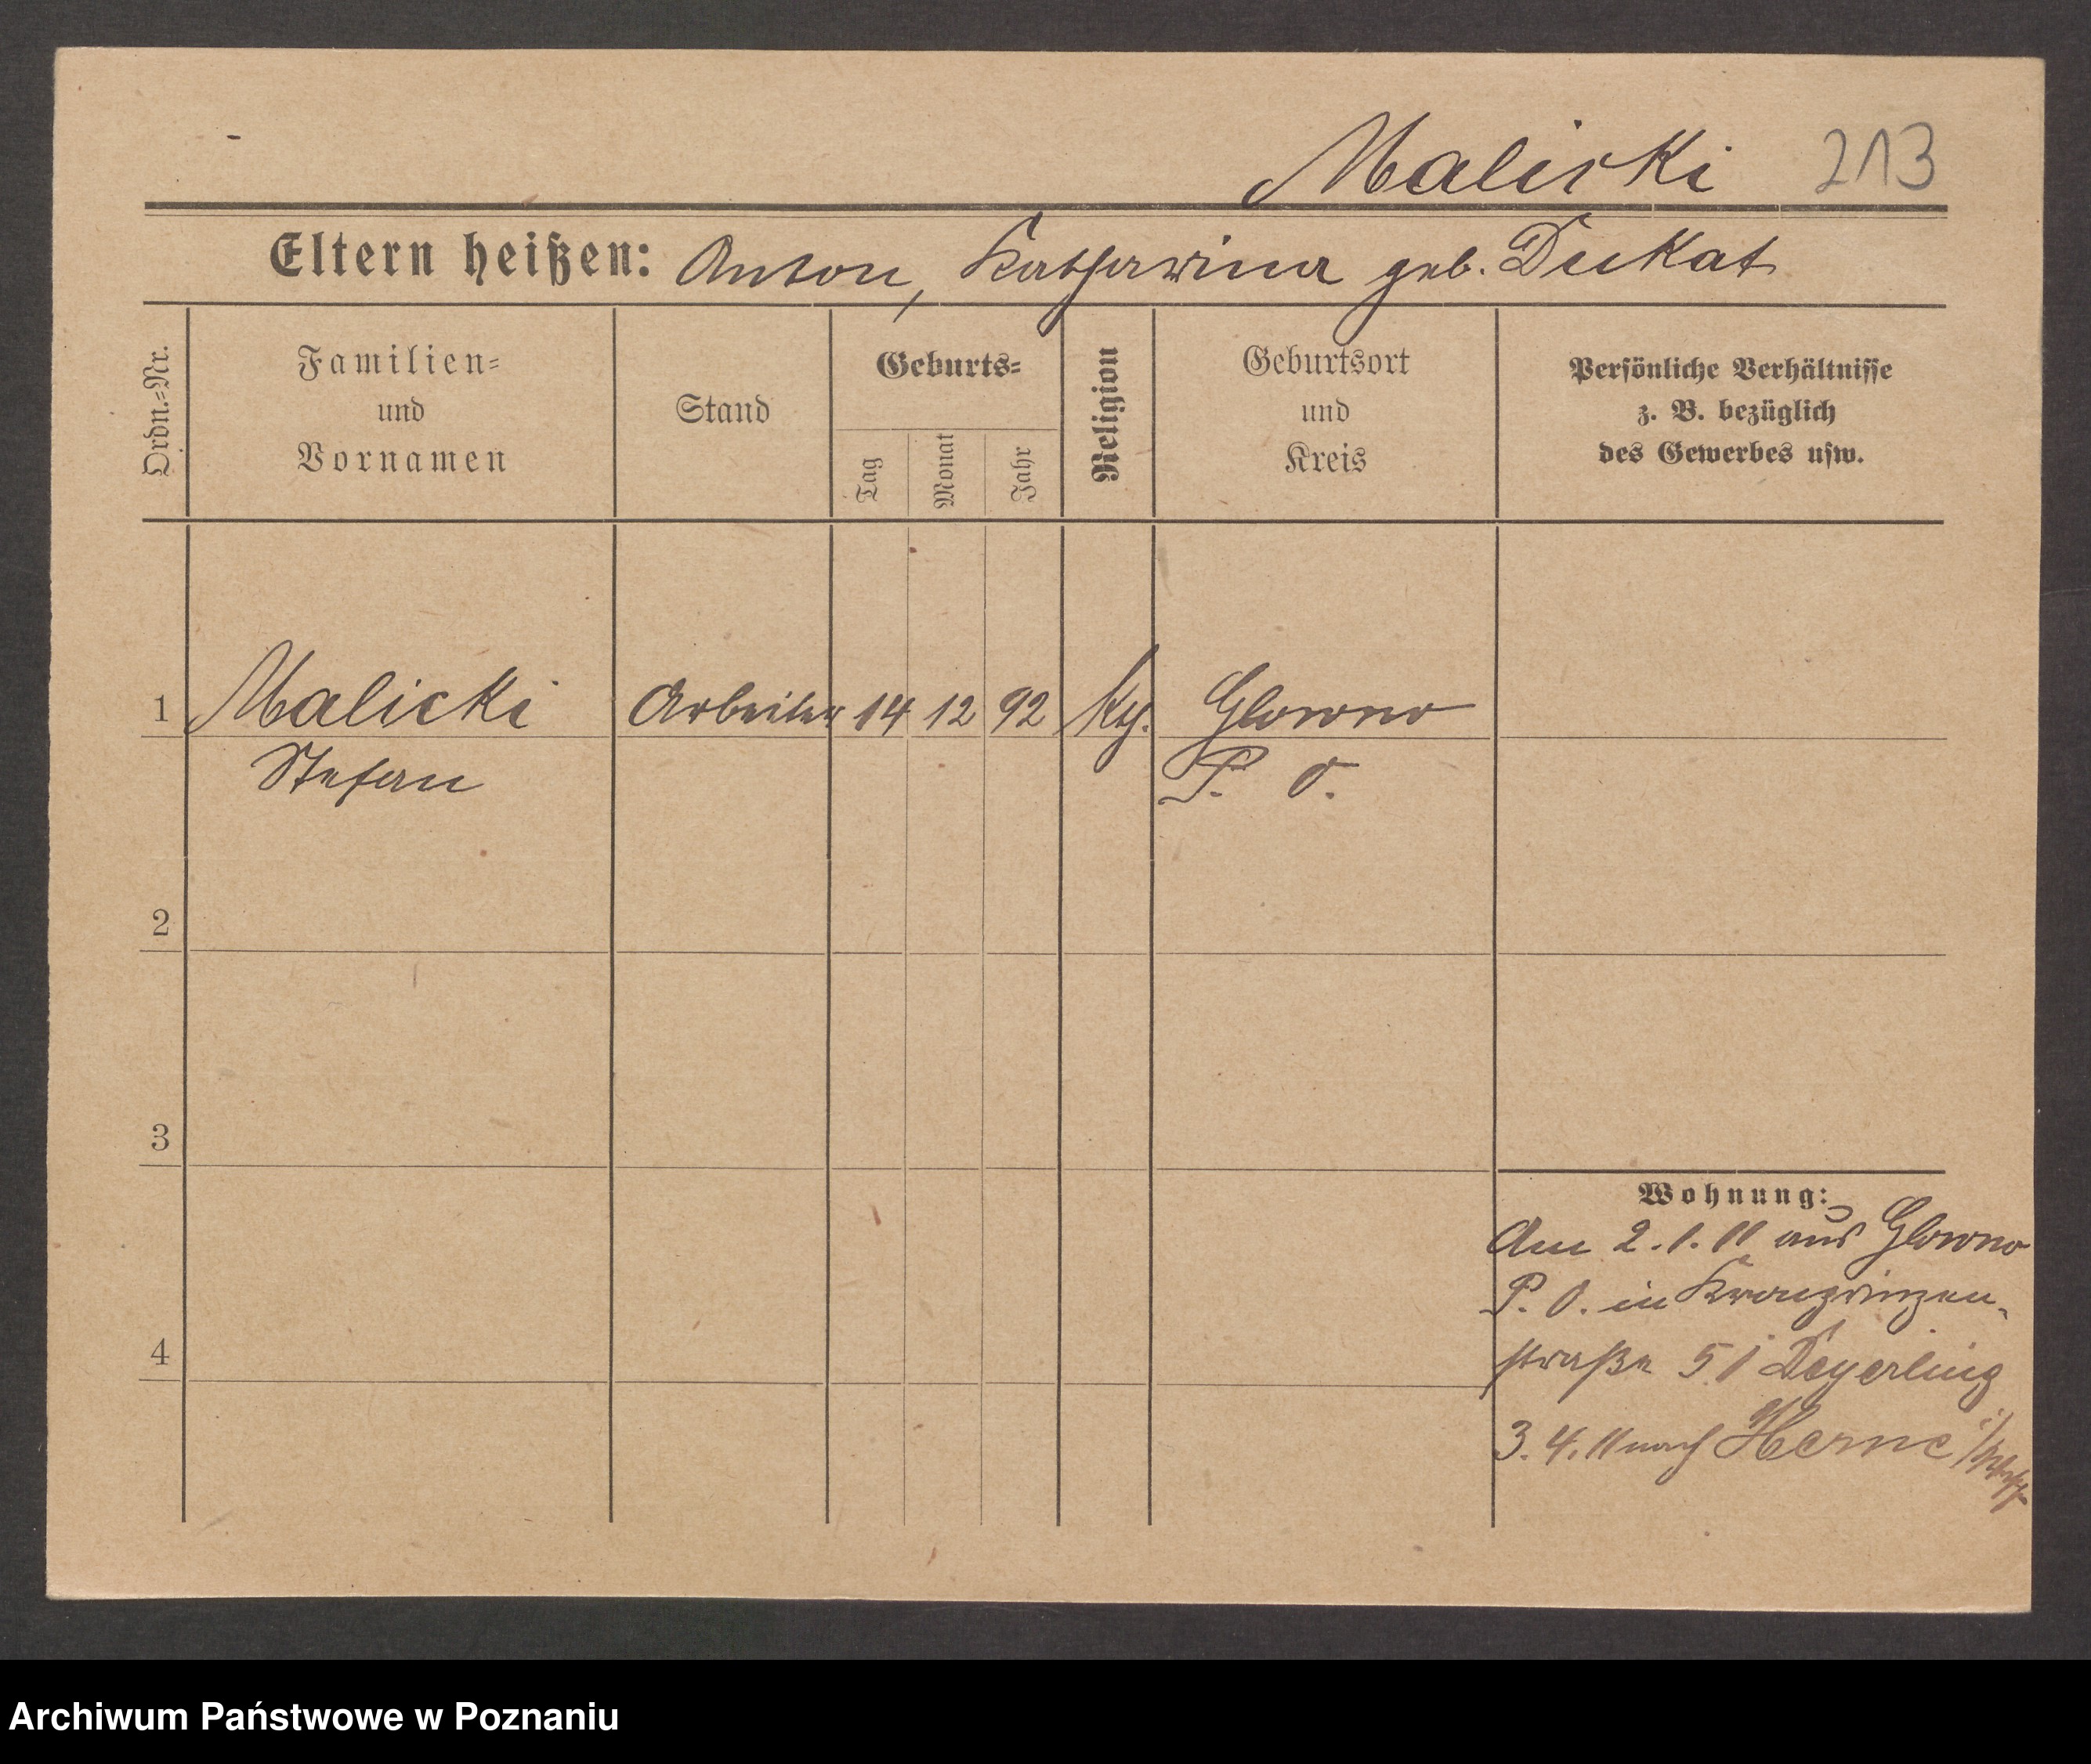 Malicki 213
Eltern heißen: Anton, Katharina geb. Dukat
Ordn.=Nr.
Familien=
und
Vornamen
Stand
Geburts=
Tag
Monat
Jahr
Religion
Geburtsort
und
Kreis
Persönliche Verhältnisse
z. B. bezüglich
des Gewerbes usw.
1 Malicki Arbeiter 14 12 92 kth. Glowno
Stefan P. O.
2
3
4
Wohnung:
Am 2.1.11 aus Glowno
P. O. in Kronprinzen-
straße 51 Deyerling
3.4.11 nach Herne
Archiwum Państwowe w Poznaniu